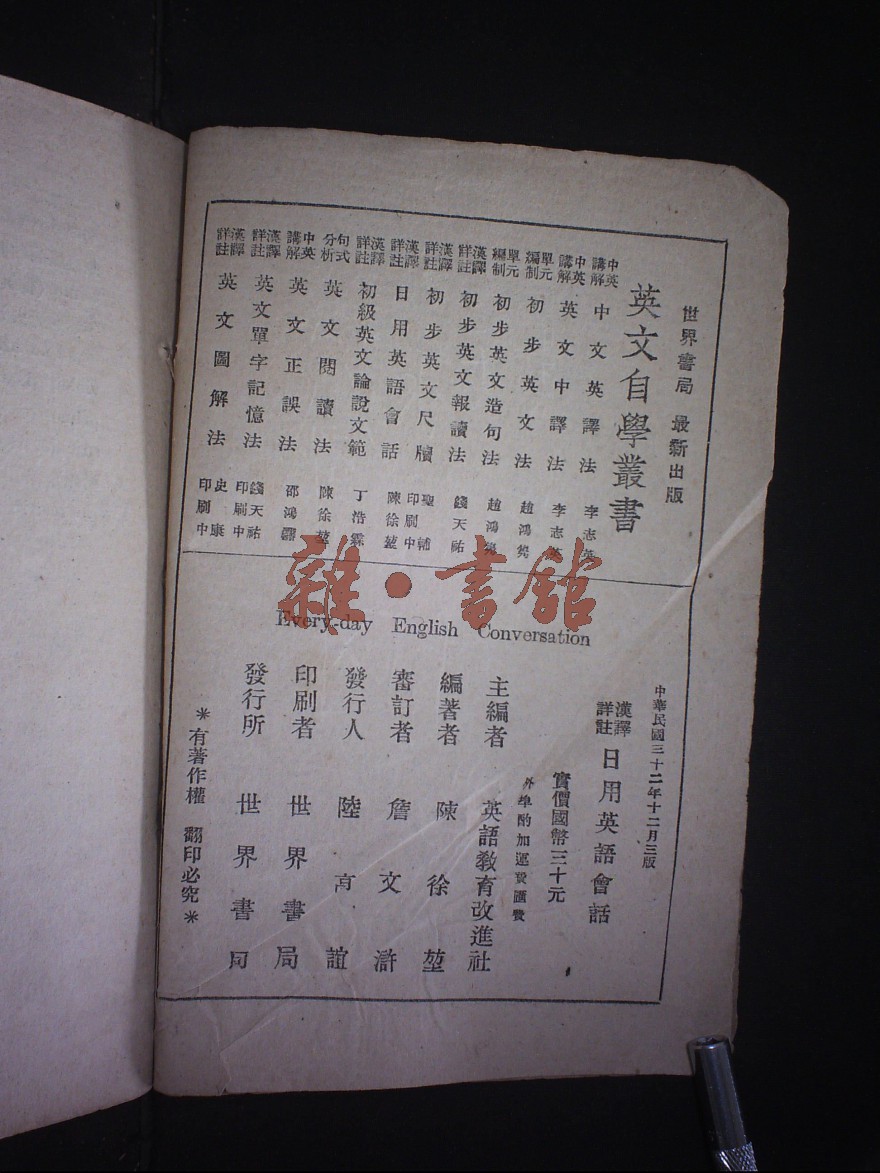 世界書局 最新出版
英文自學叢書
中英講解 中文英譯法 李志英
中英講解 英文中譯法 李志英
單元編制 初步英文法 趙鴻雋
單元編制 初步英文造句法 趙鴻雋
漢譯詳註 初步英文報讀法 錢天祐
漢譯詳註 初步英文尺牘 聖輔 印刷中
漢譯詳註 日用英語會話 陳徐堃
漢譯詳註 初級英文論說文範 丁浩霖
句式分析 英文閱讀法 陳徐堃
中英講解 英文正誤法 邵鴻
漢譯詳註 英文單字記憶法 錢天祐 印刷中
漢譯詳註 英文圖解法 史康 印刷中
雜·書館
Every-day English Conversation
中華民國三十二年十二月三版
漢譯詳註 日用英語會話
實價國幣三十元
外埠酌加運費匯費
主編者 英語教育改進社
編著者 陳徐堃
審訂者 詹文滸
發行人 陸高誼
印刷者 世界書局
發行所 世界書局
＊有著作權 翻印必究＊